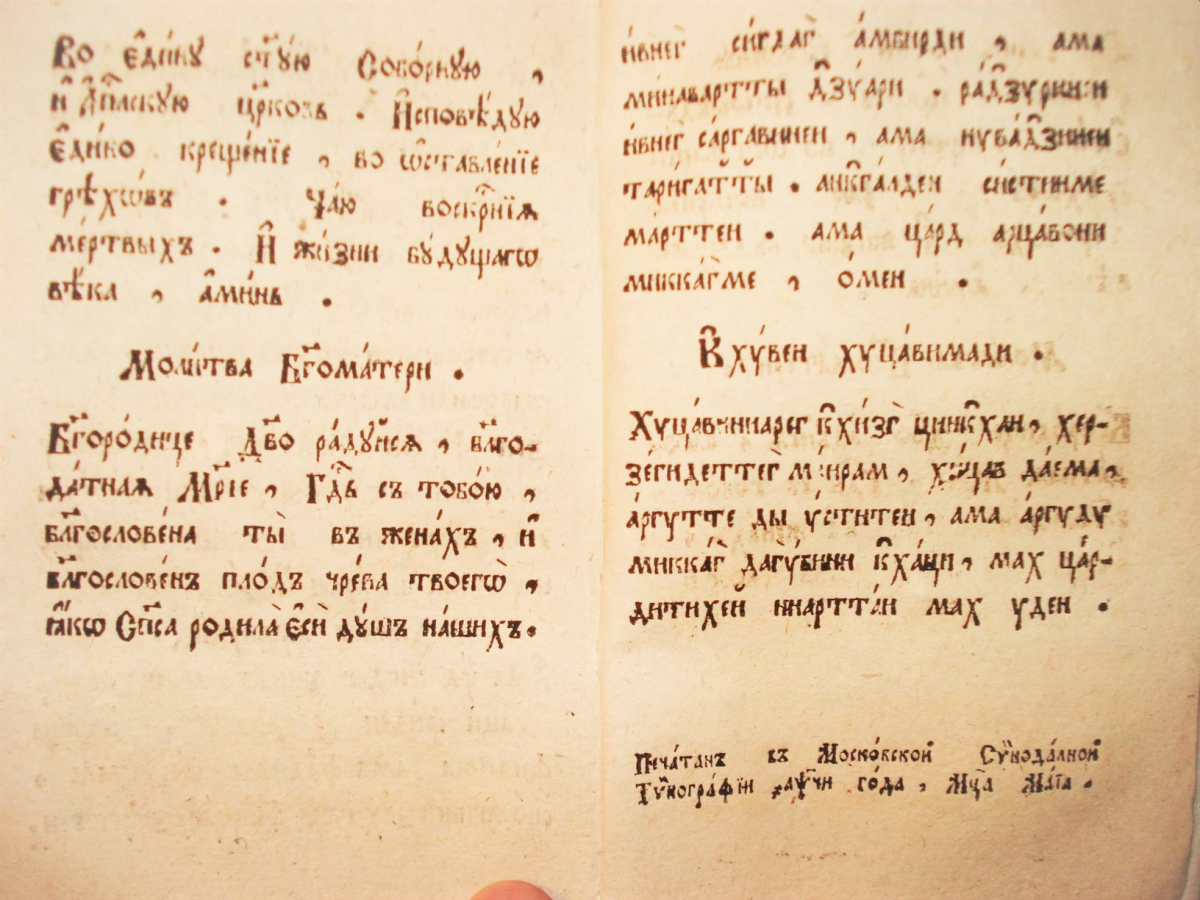 Во є҆ди́нꙋ ст҃ꙋ́ю Собо́рнꙋю ,
и҆ А҆пⷭ҇лскꙋю цр҃ковь . И҆сповѣ́дꙋю
є҆ди́но креще́нїе , во ѡ҆ставле́нїе
грѣхѡ́въ . Ча́ю воскрⷭ҇нїѧ
ме́ртвыхъ . И҆ жи́зни бꙋ́дꙋщагѡ
вѣ́ка , а҆ми́нь .
Моли́тва Бг҃ома́тери .
Бг҃оро́дице Дв҃о ра́дꙋйсѧ , бл҃го-
да́тнаѧ Мр҃їе , Гдⷭ҇ь съ тобо́ю ,
бл҃гослове́на ты̀ въ жена́хъ , и҆
бл҃гослове́нъ пло́дъ чре́ва твоегѡ̀ ,
ꙗ҆́кѡ Сп҃са родила̀ є҆сѝ дꙋ́шъ на́шихъ .
и́внег сигдаг а́мбирди , ама
мина́вартты дзꙋ́ари . ра́дзꙋринен
и́внег са́ргавинен , ама нꙋба́дзинен
таригатты . анкга́лден си́стинме
ма́рттен . ама ца́рд арца́вони
микка́гме , о́мен .
Кхꙋ́вен хꙋца́вимади .
Хꙋца́виинарег кхизг цинкхан , хер-
зе́гидеттег ма́ирам , хꙋ́цав да́ема ,
а́ргꙋтте ды ꙋ́ститен , ама а́ргꙋдꙋ
микка́г дагꙋ́бини кха́ци , мах ца́р-
дитихен инартта́н мах ꙋден .
Печа́танъ въ Моско́вской Сѷнода́лной
Тѷпогра́фїи ҂аѱч҃и го́да , Мцⷭ҇а Ма́їа .